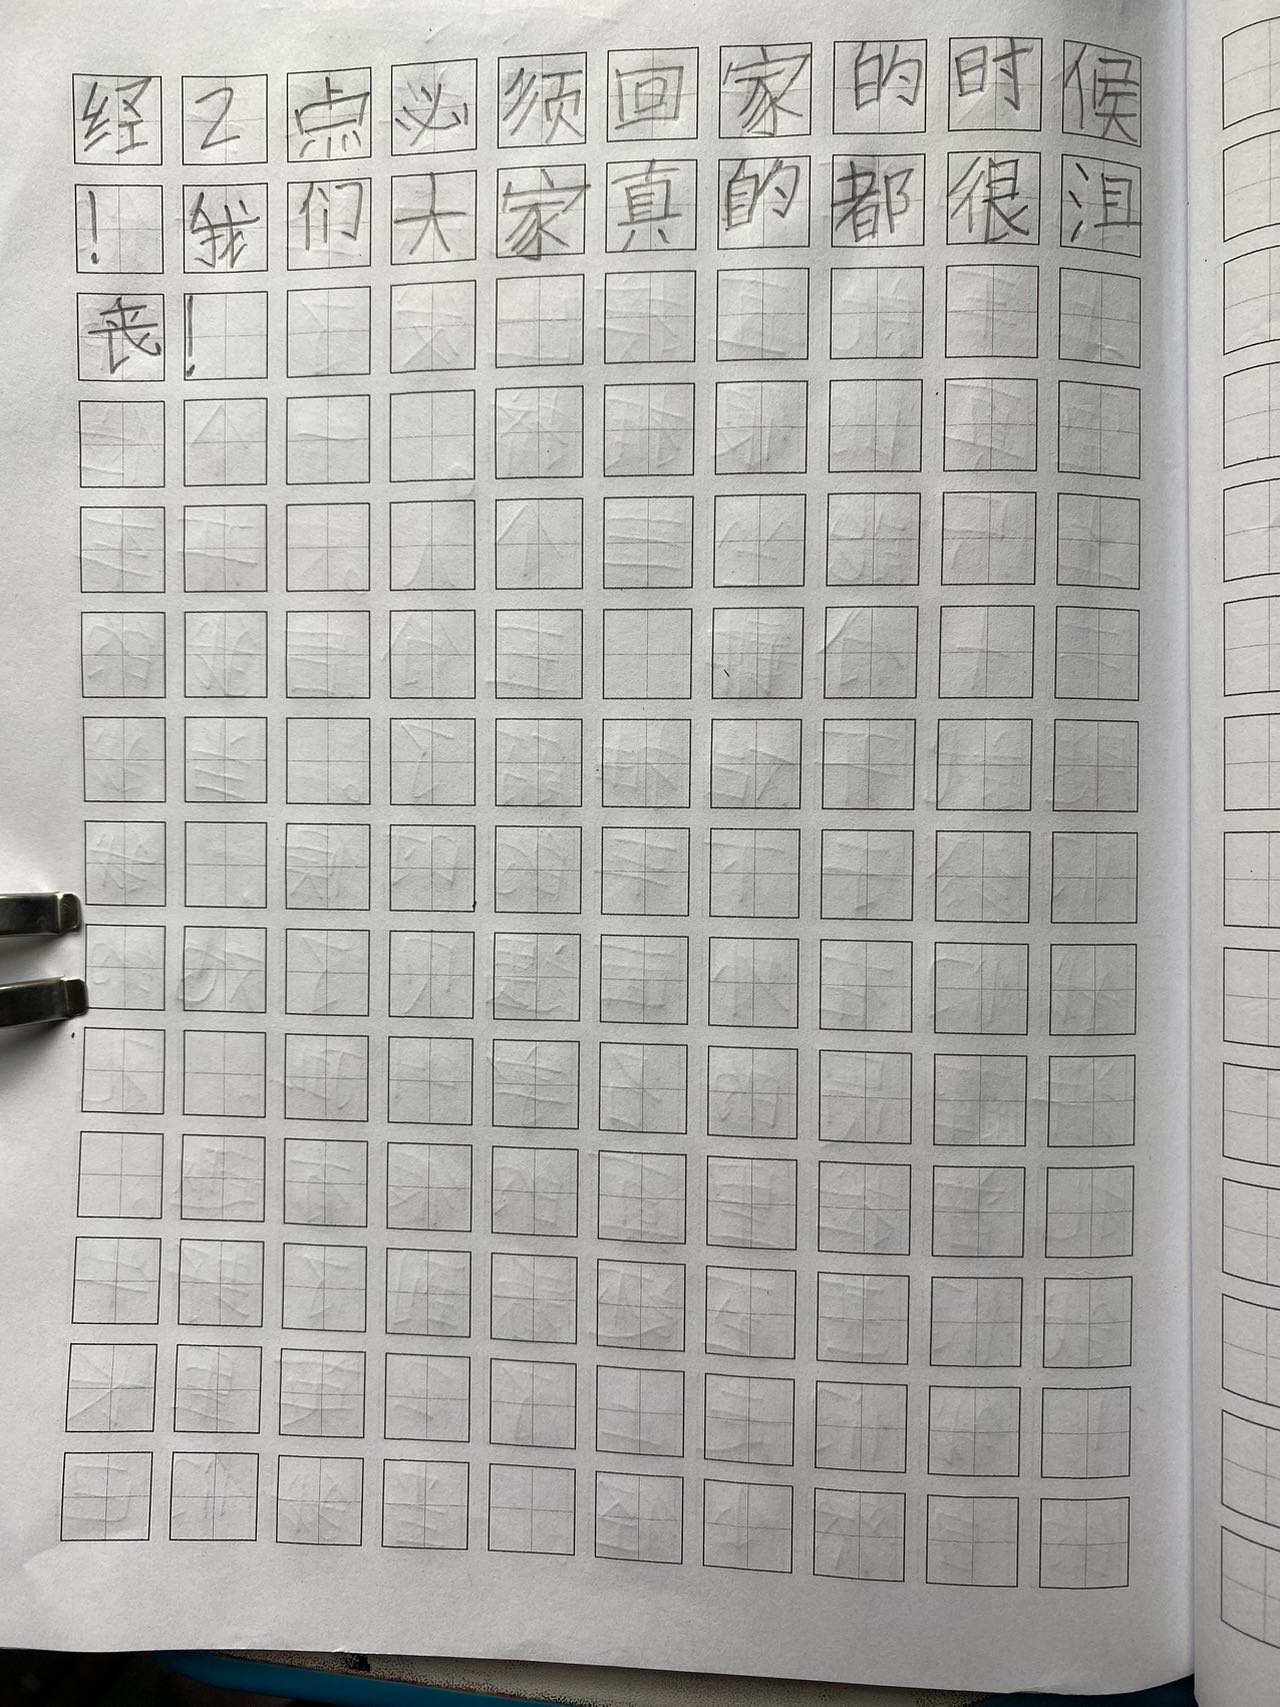 经2点必须回家的时候
！我们大家真的都很沮
丧！